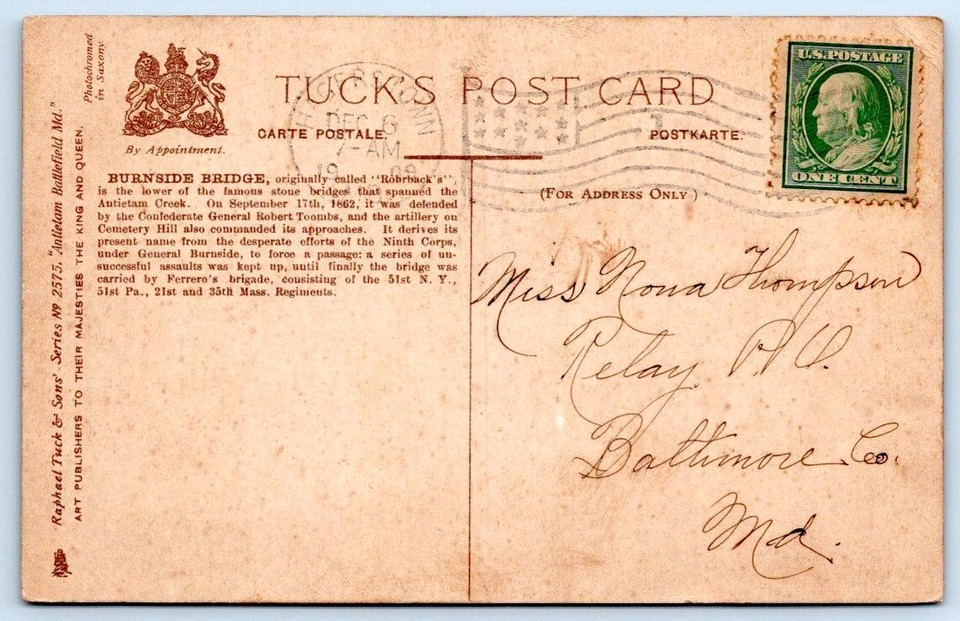 Photochromed
in Saxony.
Raphael Tuck & Sons' Series Nº 2575. "Antietam Battlefield Md."
ART PUBLISHERS TO THEIR MAJESTIES THE KING AND QUEEN.
By Appointment.
TUCK'S POST CARD
CARTE POSTALE.
POSTKARTE.
(FOR ADDRESS ONLY)
DEC 6
7-AM
U.S. POSTAGE
ONE CENT
BURNSIDE BRIDGE, originally called "Rohrback's",
is the lower of the famous stone bridges that spanned the
Antietam Creek. On September 17th, 1862, it was defended
by the Confederate General Robert Toombs, and the artillery on
Cemetery Hill also commanded its approaches. It derives its
present name from the desperate efforts of the Ninth Corps,
under General Burnside, to force a passage: a series of un-
successful assaults was kept up, until finally the bridge was
carried by Ferrero's brigade, consisting of the 51st N. Y.,
51st Pa., 21st and 35th Mass. Regiments.
Miss Nona Thompson
Relay P.O.
Baltimore Co.
Md.